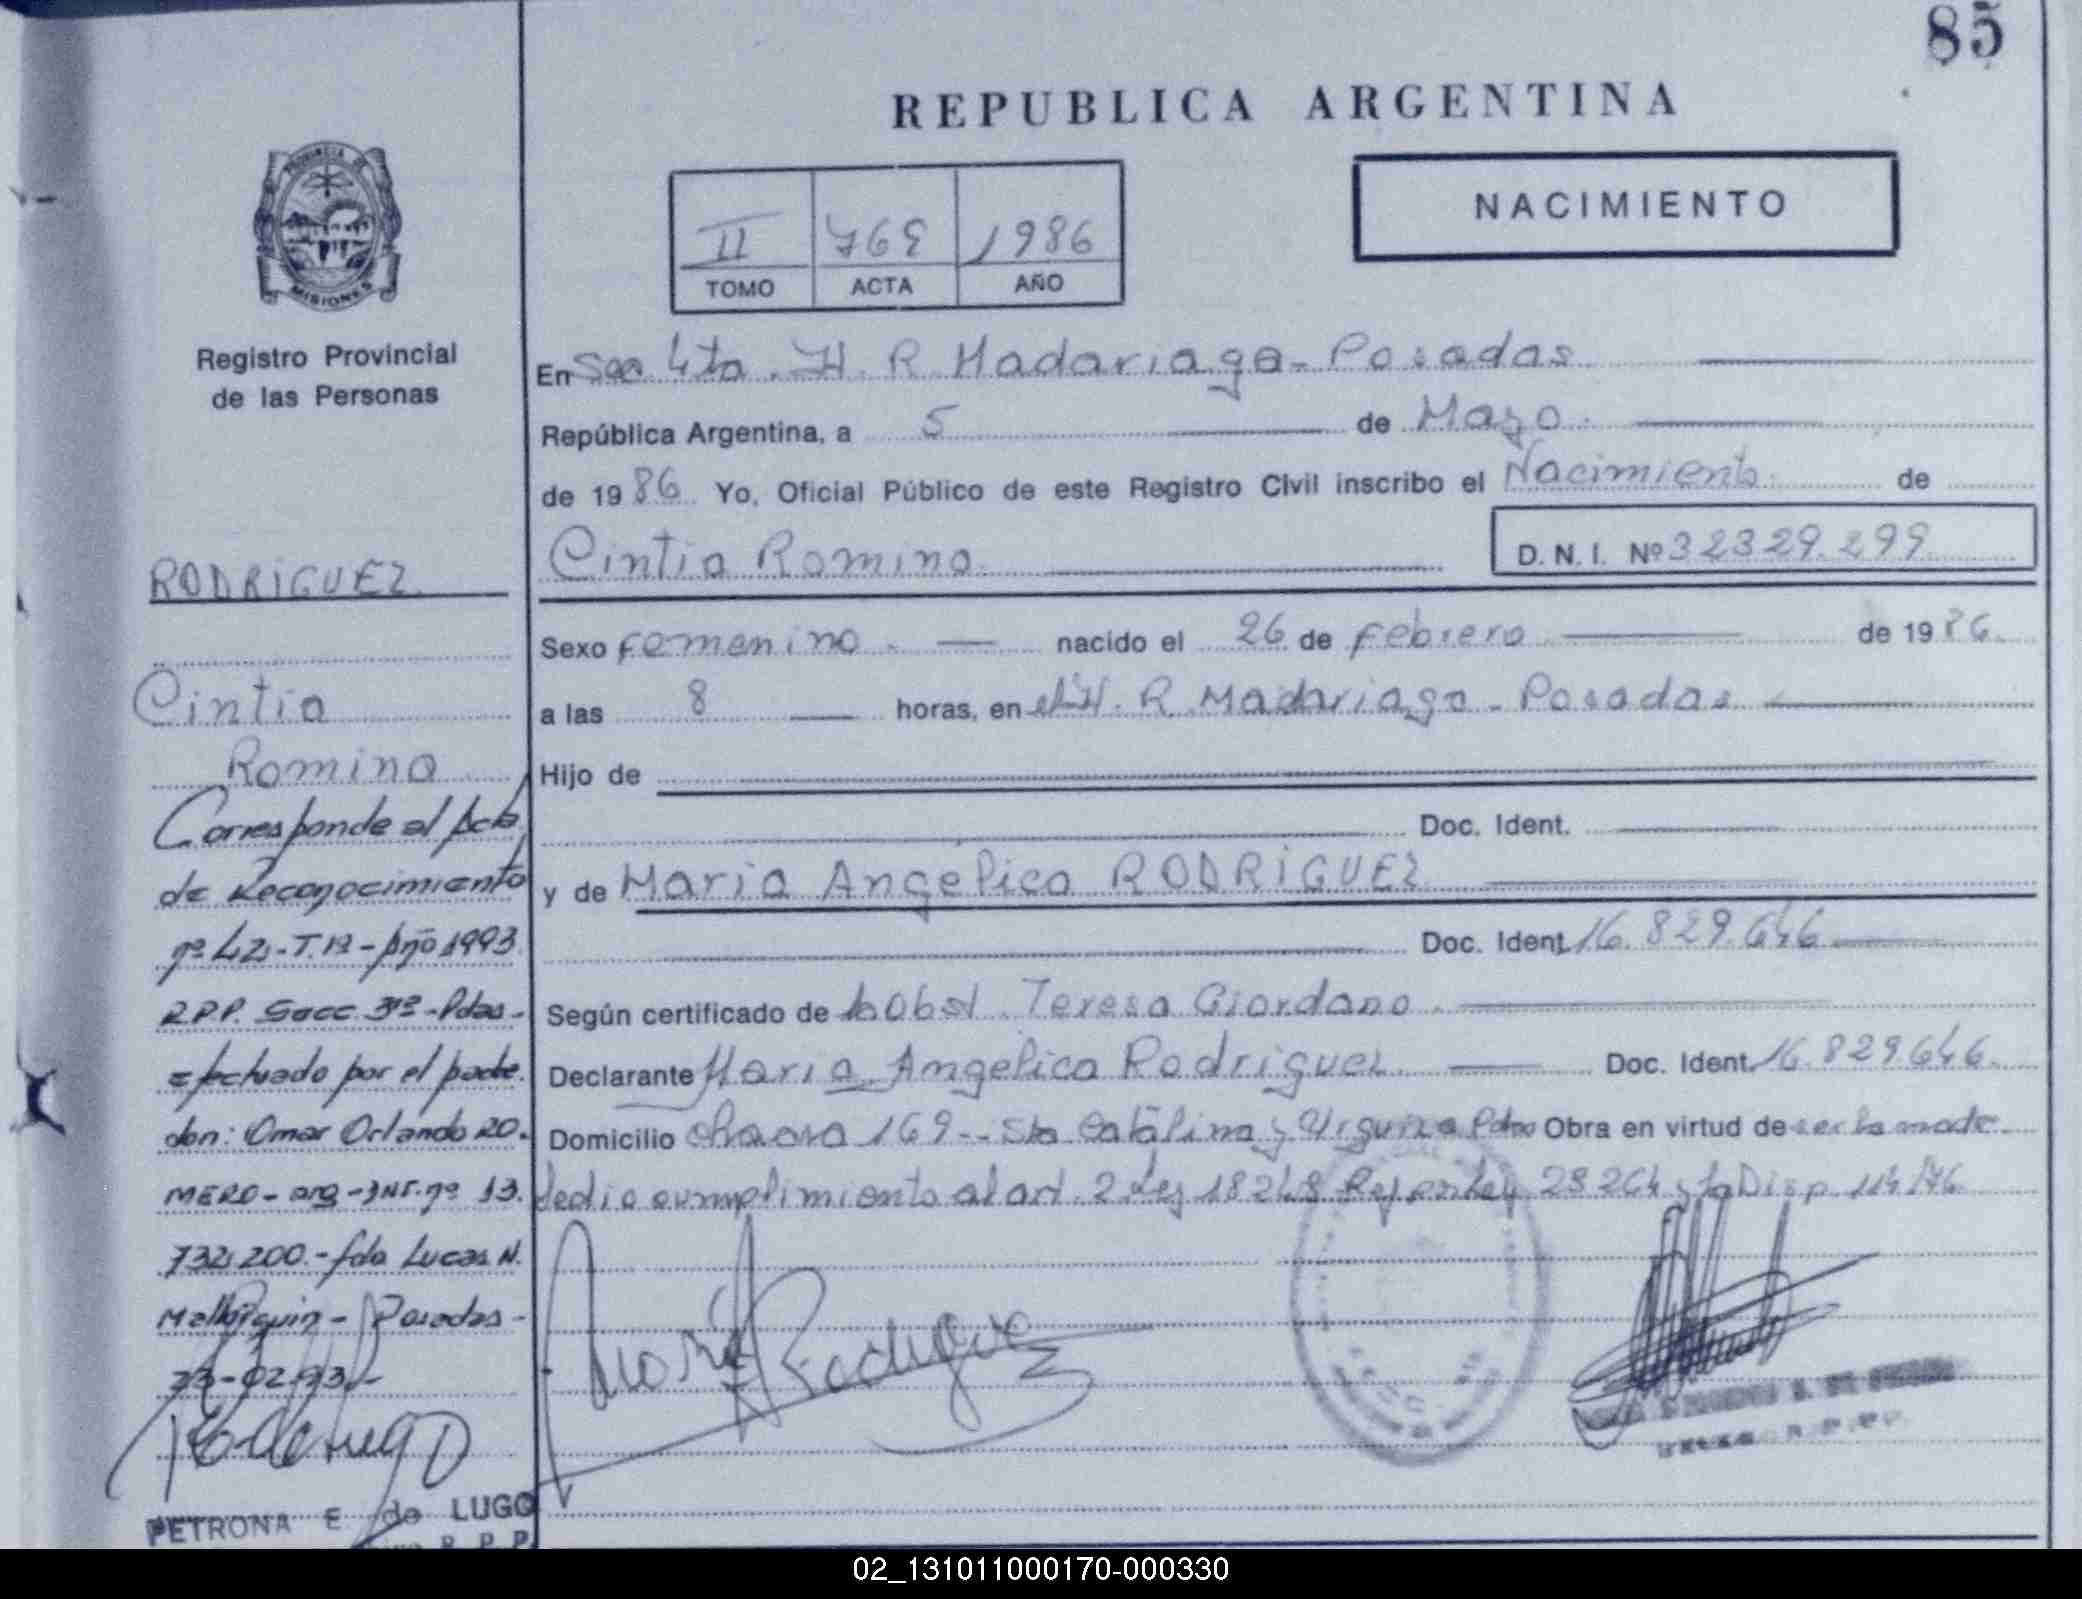 85
REPUBLICA ARGENTINA
NACIMIENTO
II 769 1986
TOMO ACTA AÑO
PROVINCIA DE
MISIONES
Registro Provincial
de las Personas
En Secc 4ta. H. R. Madariaga - Posadas
República Argentina, a 5 de Mayo.
de 1986 Yo, Oficial Público de este Registro Civil inscribo el Nacimiento de
Cintia Romina D. N. I. Nº 32329.299
Sexo Femenino. nacido el 26 de Febrero de 1986.
a las 8 horas, en el H. R. Madariaga - Posadas
Hijo de
Doc. Ident.
y de Maria Angelica RODRIGUEZ
Doc. Ident. 16.829.646
Según certificado de la Obst. Teresa Giordano
Declarante Maria Angelica Rodriguez Doc. Ident. 16.829.646.
Domicilio chacra 169 - Sta Catalina y Urquiza Pdas Obra en virtud de ser la madre
se dio cumplimiento al art. 2 Ley 18248 Ref por Ley 23264 y la Disp. 114/76
Maria A Rodriguez
RODRIGUEZ
Cintia
Romina
Corresponde al Acta
de Reconocimiento
nº 42 - T. - Año 1993
R.P.P. Secc 3ra - Pdas -
efectuado por el padre
don: Omar Orlando RO-
MERO - arg - DNI. nº 13.
732.200 - fdo Lucas N.
Posadas -
23-02-93 -
PETRONA E de LUGO
R. P. P.
02_131011000170-000330